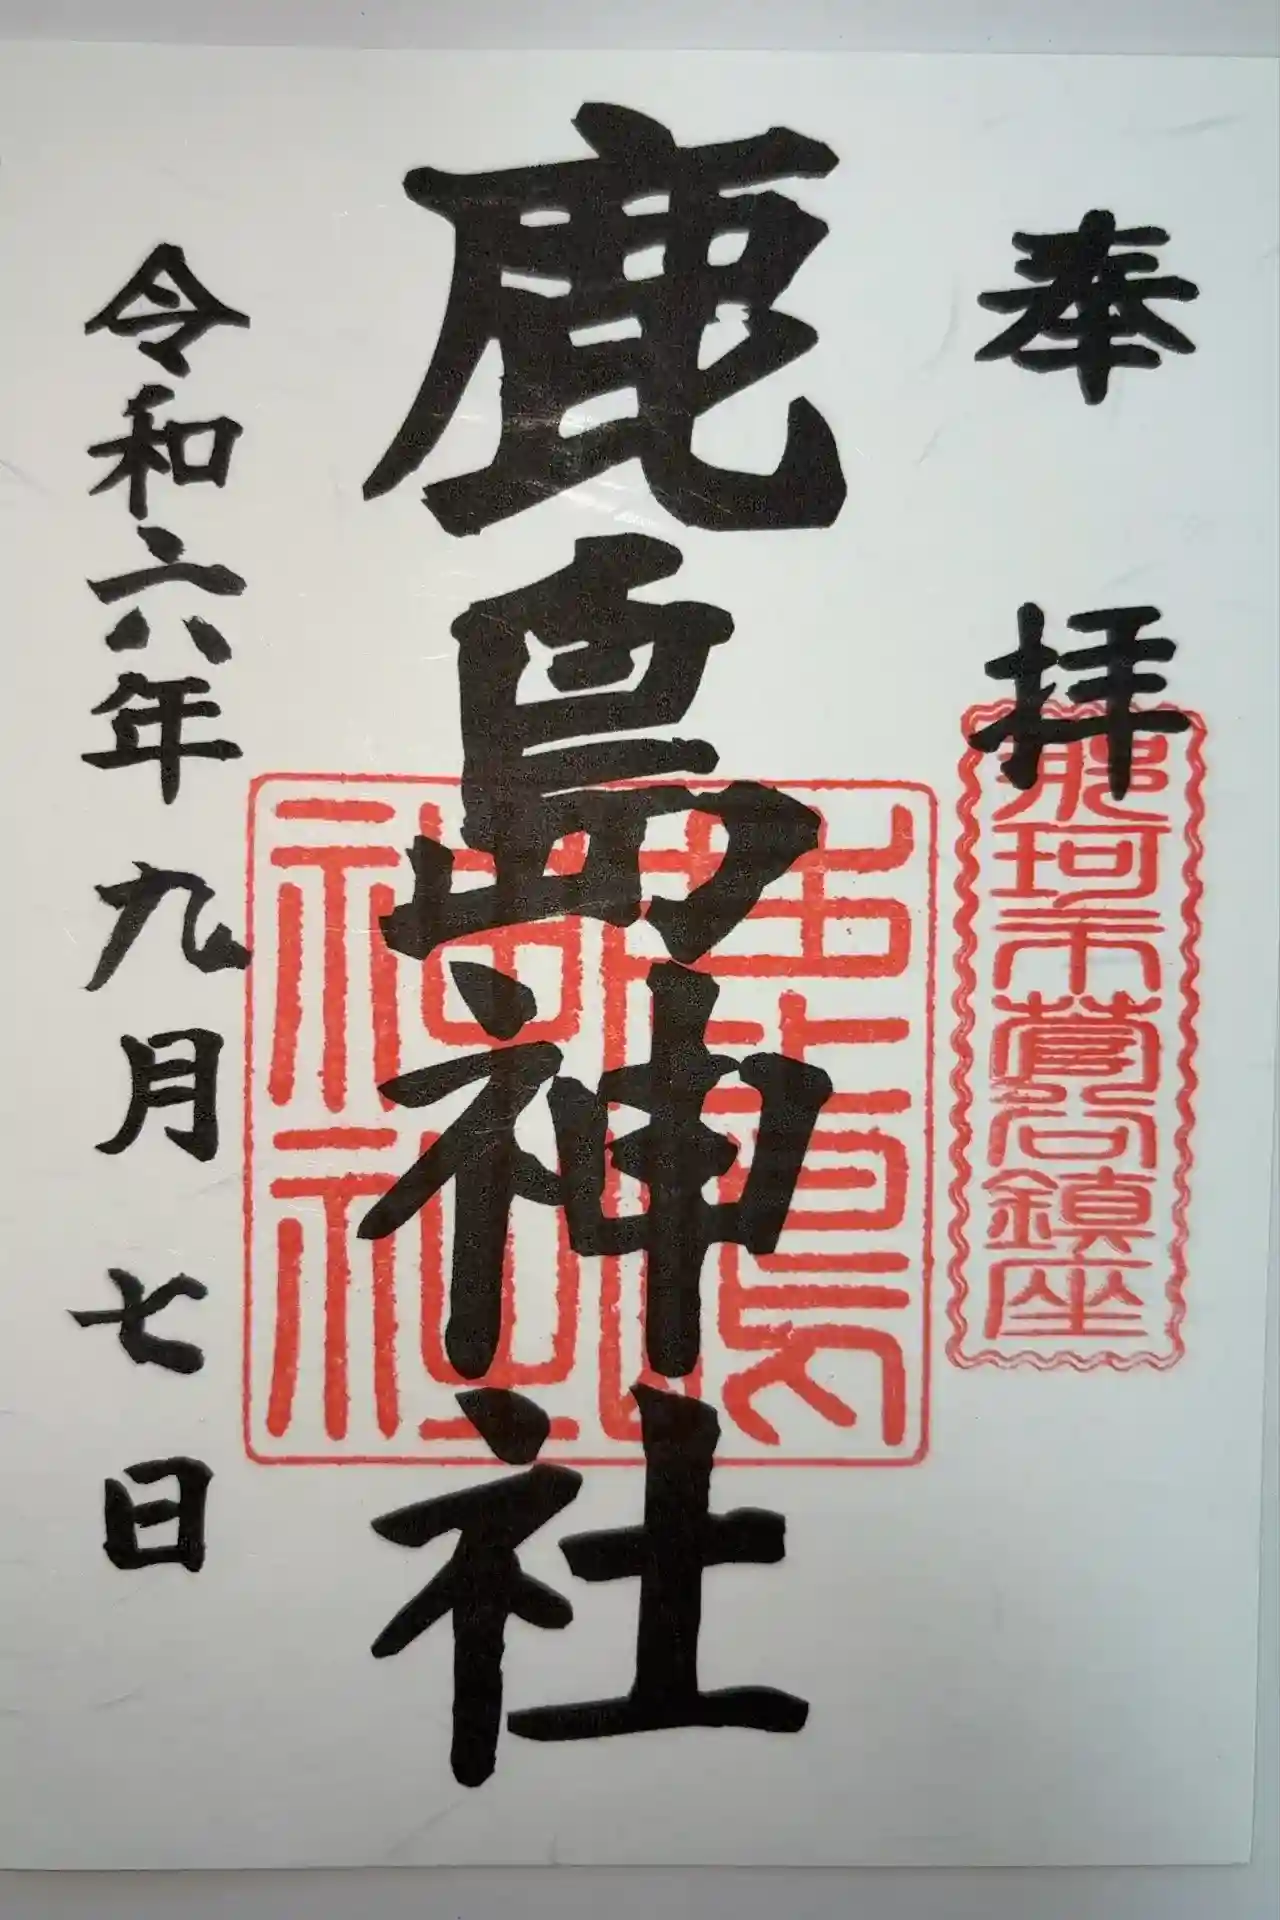 奉拝
鹿島神社
鹿島神社
鎮座
令和六年九月七日